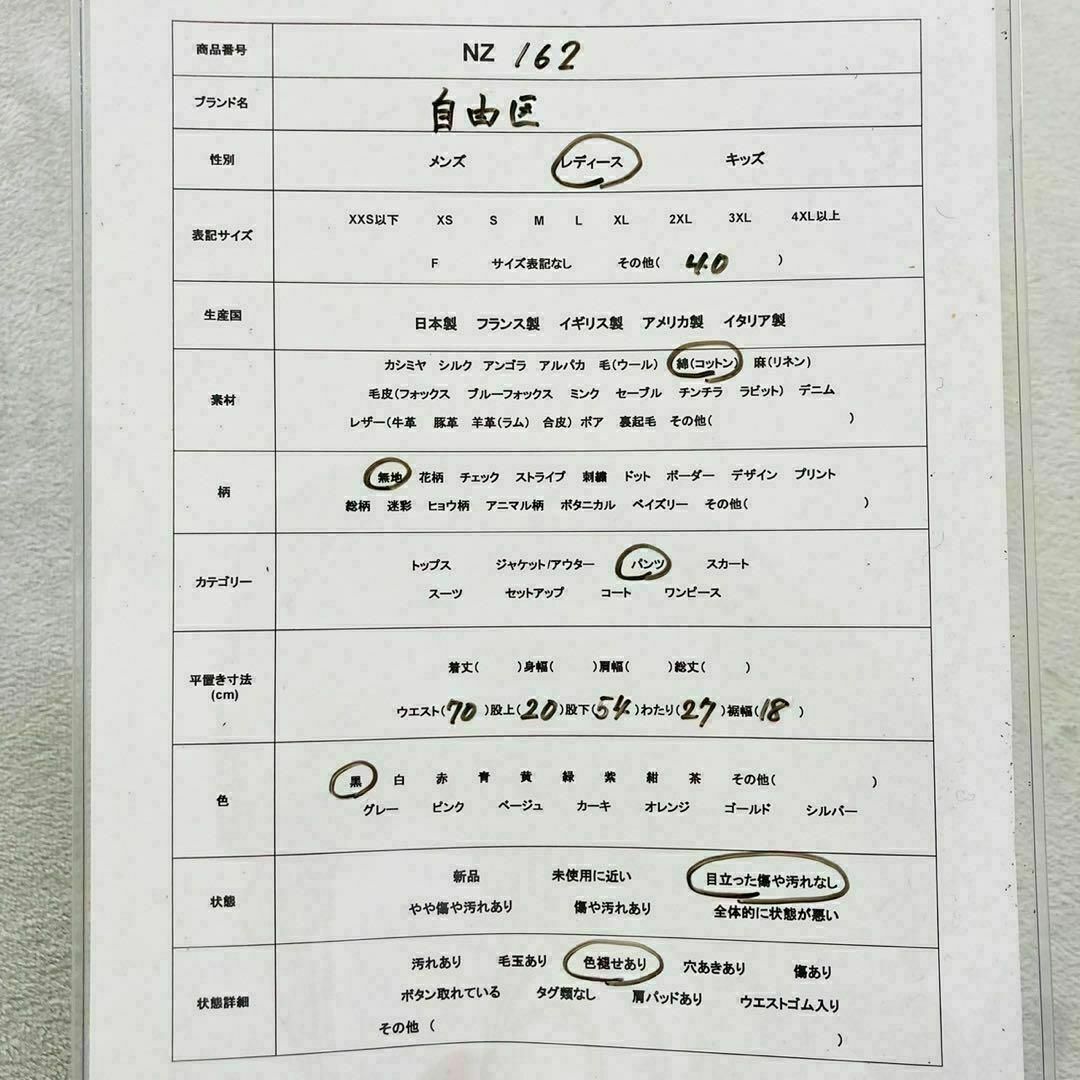 商品番号 NZ 162
ブランド名 自由区
性別 メンズ レディース キッズ
XXS以下 XS S M L XL 2XL 3XL 4XL以上
表記サイズ
F サイズ表記なし その他( 40 )
生産国 日本製 フランス製 イギリス製 アメリカ製 イタリア製
カシミヤ シルク アンゴラ アルパカ 毛(ウール) 綿(コットン) 麻(リネン)
素材 毛皮(フォックス ブルーフォックス ミンク セーブル チンチラ ラビット) デニム
レザー(牛革 豚革 羊革(ラム) 合皮) ボア 裏起毛 その他( )
柄 無地 花柄 チェック ストライプ 刺繍 ドット ボーダー デザイン プリント
総柄 迷彩 ヒョウ柄 アニマル柄 ボタニカル ペイズリー その他( )
トップス ジャケット/アウター パンツ スカート
カテゴリー
スーツ セットアップ コート ワンピース
着丈( )身幅( )肩幅( )総丈( )
平置き寸法
(cm)
ウエスト(70)股上(20)股下(54)わたり(27)裾幅(18 )
黒 白 赤 青 黄 緑 紫 紺 茶 その他( )
色
グレー ピンク ベージュ カーキ オレンジ ゴールド シルバー
新品 未使用に近い 目立った傷や汚れなし
状態
やや傷や汚れあり 傷や汚れあり 全体的に状態が悪い
汚れあり 毛玉あり 色褪せあり 穴あきあり 傷あり
状態詳細 ボタン取れている タグ類なし 肩パッドあり ウエストゴム入り
その他 ( )